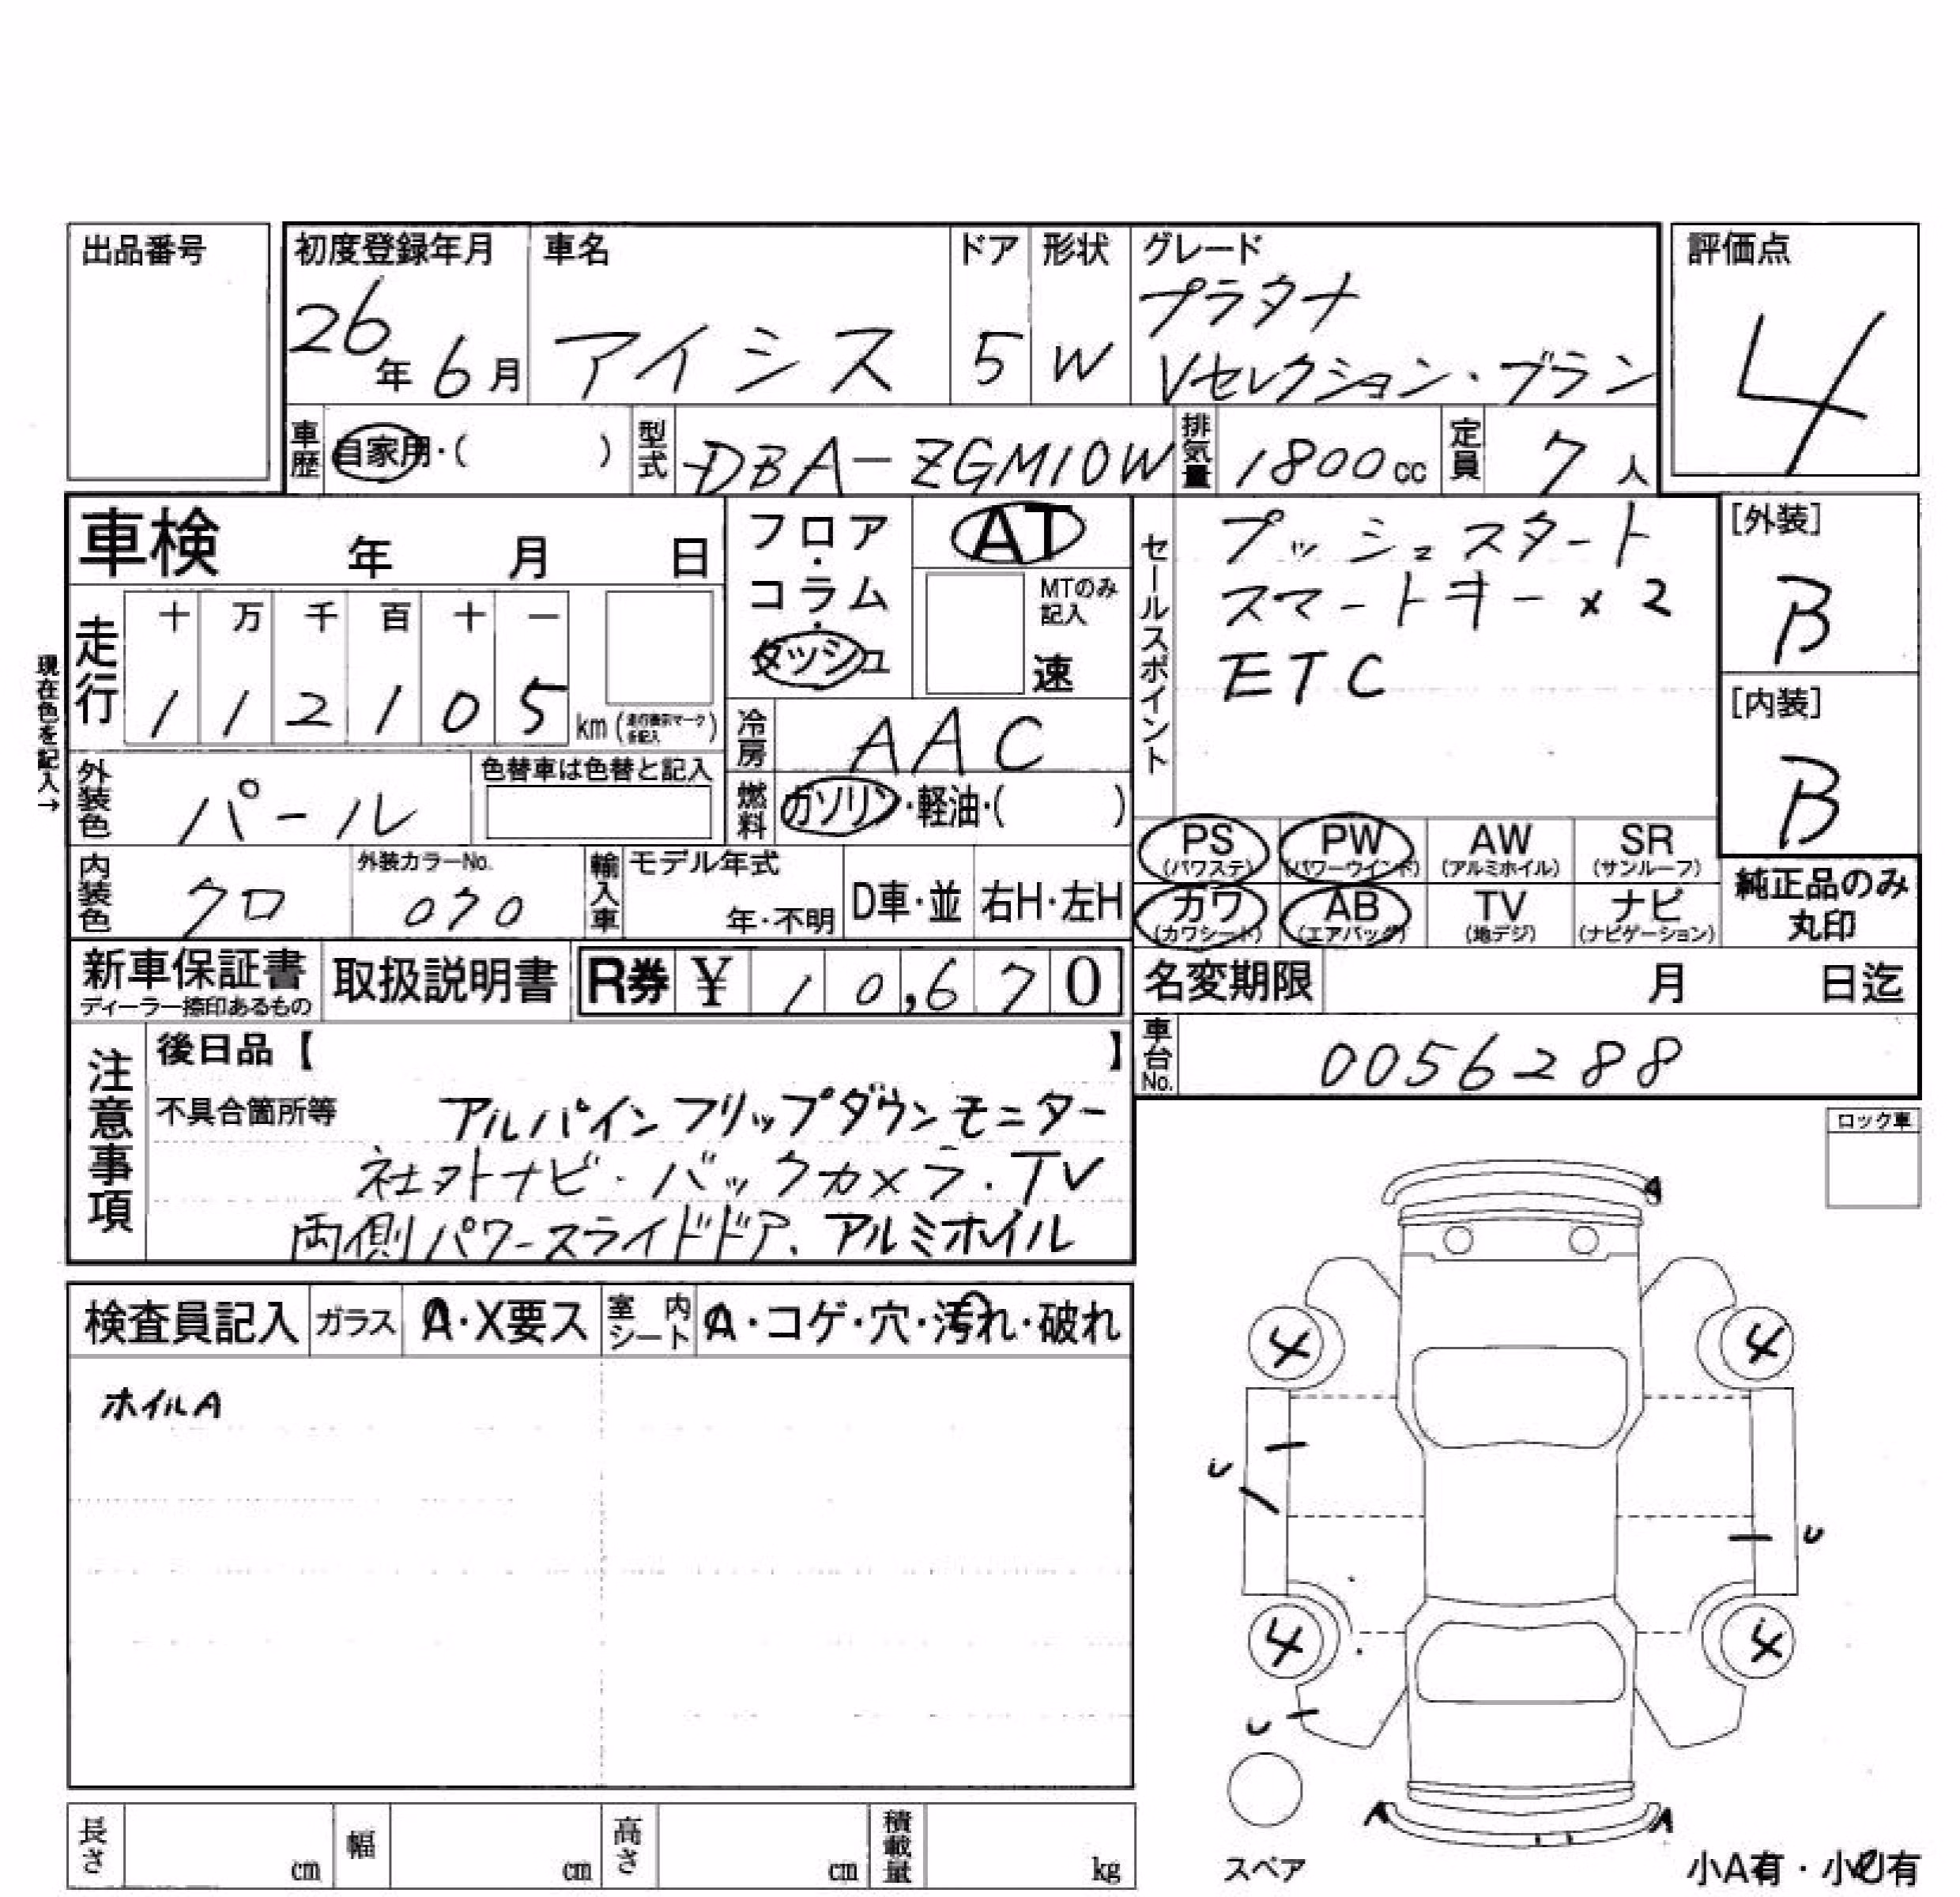 出品番号
初度登録年月 車名 ドア 形状 グレード
評価点
26年 6月 アイシス 5 W プラタナ
Vセレクション・ブラン
4
車歴 自家用・( ) 型式 DBA-ZGM10W 排気量 1800cc 定員 7人
車検 年 月 日
フロア・コラム・ダッシュ
AT
MTのみ記入
速
セールスポイント
プッシュスタート
スマートキー×2
ETC
[外装]
B
[内装]
B
現在色を記入→
走行 十 万 千 百 十 一
1 1 2 1 0 5 km
冷房 AAC
外装色 パール 色替車は色替と記入
燃料 ガソリン・軽油・( )
PS (パワステ) PW (パワーウインド) AW (アルミホイル) SR (サンルーフ)
カワ (カワシート) AB (エアバッグ) TV (地デジ) ナビ (ナビゲーション)
純正品のみ
丸印
内装色 クロ 外装カラーNo. 070 輸入車 モデル年式 年・不明 D車・並 右H・左H
新車保証書 ディーラー捺印あるもの 取扱説明書 R券 ¥ 10,670
名変期限 月 日迄
車台No. 0056288
注意事項
後日品【 】
不具合箇所等 アルパインフリップダウンモニター
社外ナビ・バックカメラ・TV
両側パワースライドドア、アルミホイル
ロック車
検査員記入 ガラス A・X要ス 室内シート A・コゲ・穴・汚れ・破れ
ホイルA
A
4 4
U
U
4 4
U
A A
スペア
小A有・小U有
長さ cm 幅 cm 高さ cm 積載量 kg